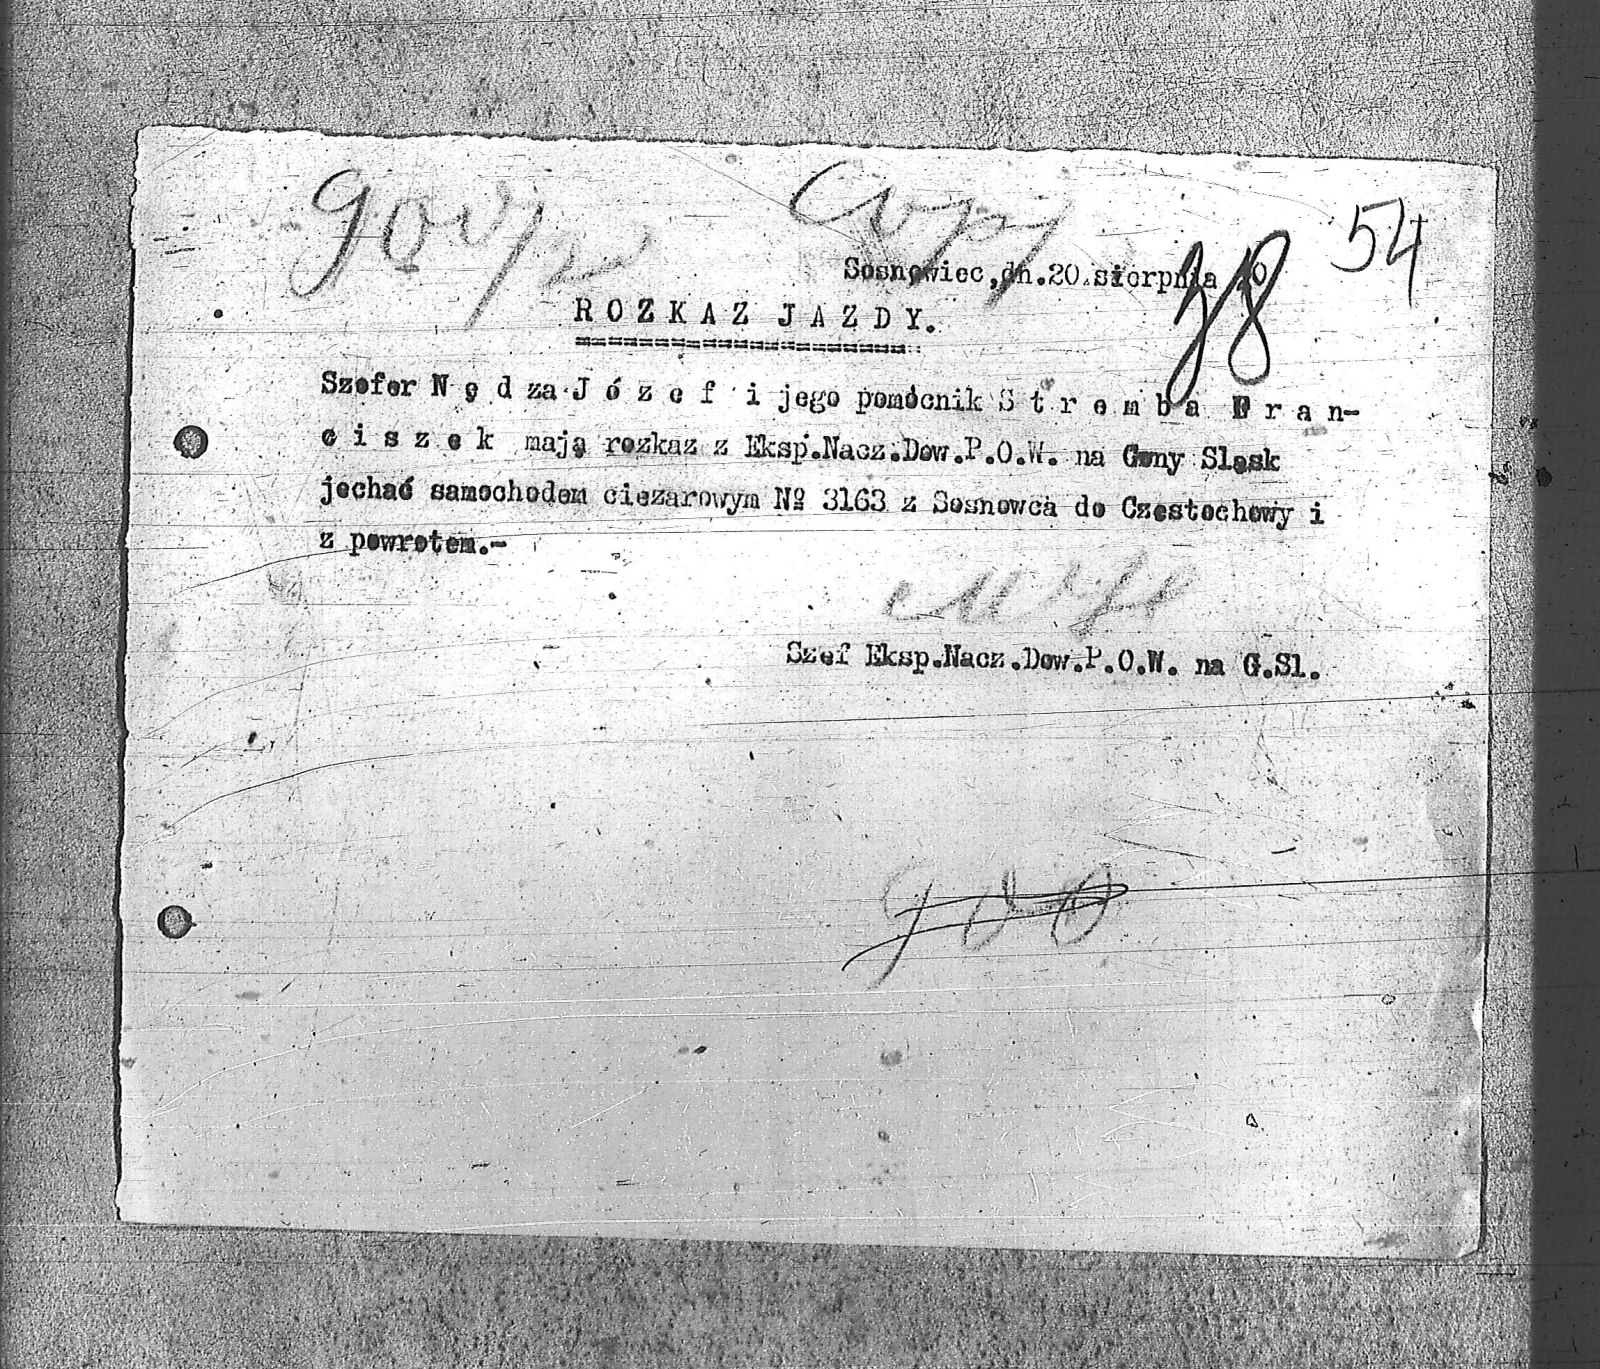 54
38
Sosnowiec,dn.20.sierpnia 20
ROZKAZ JAZDY.
Szofer N ę d za J ó z e f i jego pomocnik S t r e m b a F r a n-
c i s z e k mają rozkaz z Eksp.Nacz.Dow.P.O.W. na Gony Sląsk
jechać samochodem ciezarowym № 3163 z Sosnowca do Czestochowy i
z powrotem.-
Szef Eksp.Nacz.Dow.P.O.W. na G.Sl.